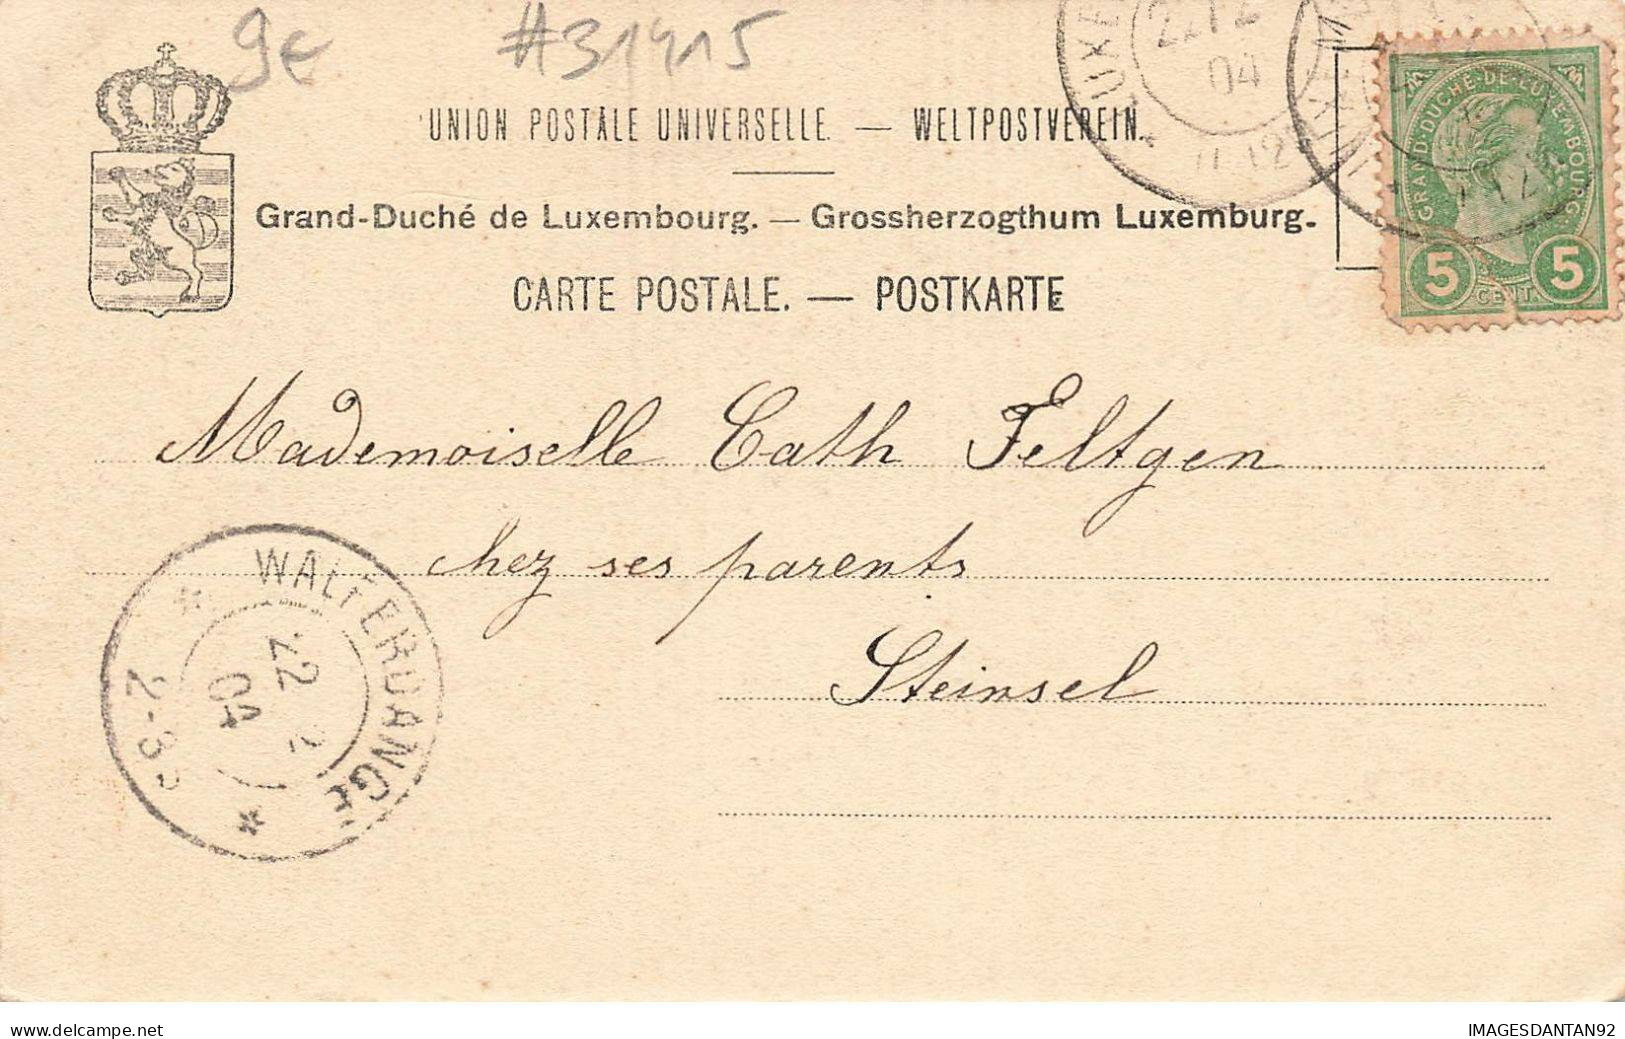 9€
#31415
UNION POSTALE UNIVERSELLE. — WELTPOSTVEREIN.
Grand-Duché de Luxembourg. — Grossherzogthum Luxemburg.
CARTE POSTALE. — POSTKARTE
04
GRAND-DUCHÉ-DE-LUXEMBOURG
5 CENT. 5
Mademoiselle Cath Feltgen
chez ses parents
Steinsel
WALFERDANGE
22 2
04
2-3
www.delcampe.net
IMAGESDANTAN92